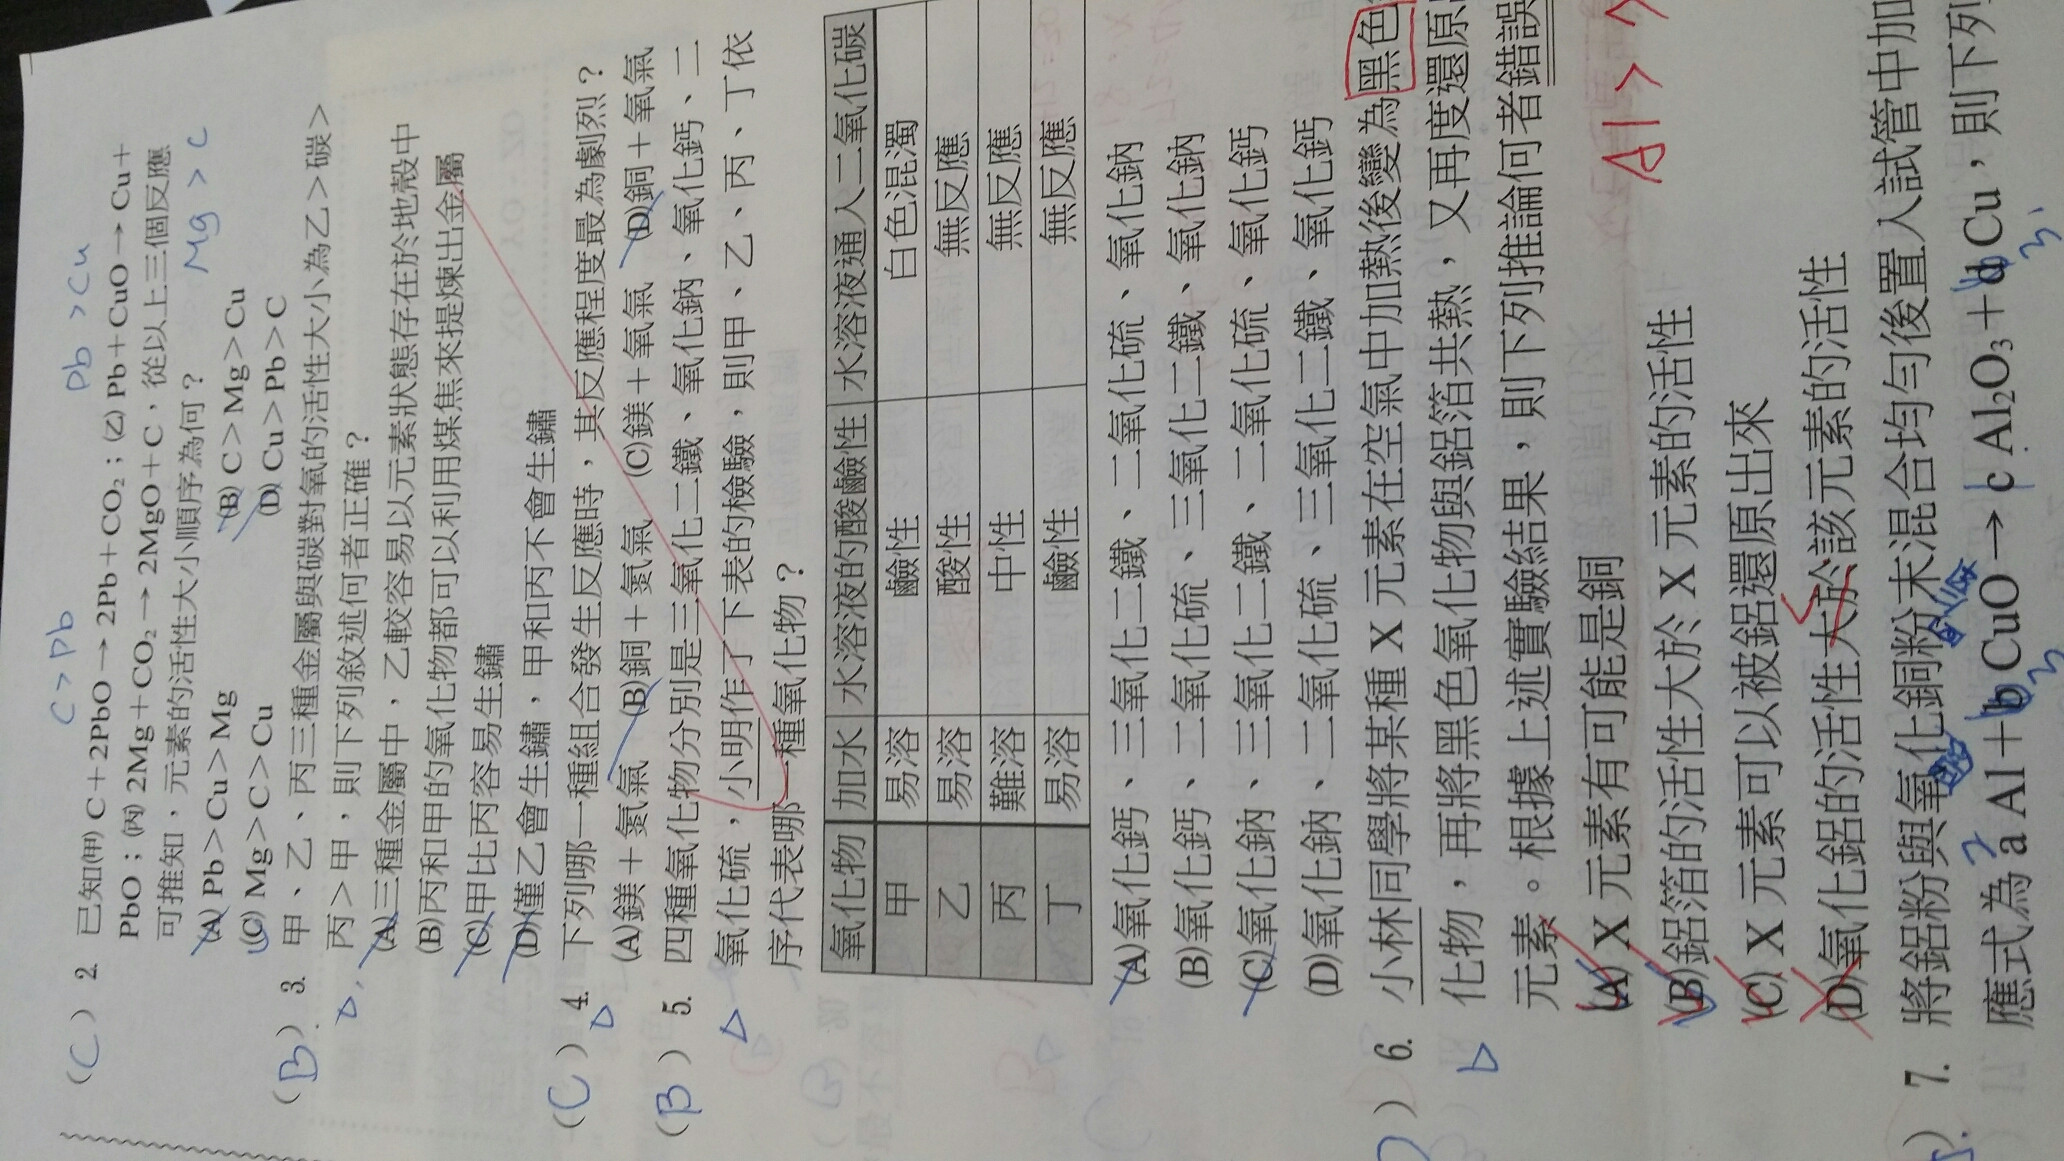 C > Pb Pb > Cu
(C) 2. 已知(甲) C＋2PbO → 2Pb＋CO₂；(乙) Pb＋CuO → Cu＋
PbO；(丙) 2Mg＋CO₂ → 2MgO＋C，從以上三個反應
可推知，元素的活性大小順序為何？ Mg > C
(A) Pb＞Cu＞Mg (B) C＞Mg＞Cu
(C) Mg＞C＞Cu (D) Cu＞Pb＞C
(B) 3. 甲、乙、丙三種金屬與碳對氧的活性大小為乙＞碳＞
丙＞甲，則下列敘述何者正確？
(A)三種金屬中，乙較容易以元素狀態存在於地殼中
(B)丙和甲的氧化物都可以利用煤焦來提煉出金屬
(C)甲比丙容易生鏽
(D)僅乙會生鏽，甲和丙不會生鏽
(C) 4. 下列哪一種組合發生反應時，其反應程度最為劇烈？
(A)鎂＋氮氣 (B)銅＋氮氣 (C)鎂＋氧氣 (D)銅＋氧氣
(B) 5. 四種氧化物分別是三氧化二鐵、氧化鈉、氧化鈣、二
氧化硫，小明作了下表的檢驗，則甲、乙、丙、丁依
序代表哪一種氧化物？
氧化物 加水 水溶液的酸鹼性 水溶液通入二氧化碳
甲 易溶 鹼性 白色混濁
乙 易溶 酸性 無反應
丙 難溶 中性 無反應
丁 易溶 鹼性 無反應
(A)氧化鈣、三氧化二鐵、二氧化硫、氧化鈉
(B)氧化鈣、二氧化硫、三氧化二鐵、氧化鈉
(C)氧化鈉、三氧化二鐵、二氧化硫、氧化鈣
(D)氧化鈉、二氧化硫、三氧化二鐵、氧化鈣
) 6. 小林同學將某種 X 元素在空氣中加熱後變為黑色
化物，再將黑色氧化物與鋁箔共熱，又再度還原
元素。根據上述實驗結果，則下列推論何者錯誤
(A) X 元素有可能是銅
Al >
(B)鋁箔的活性大於 X 元素的活性
(C) X 元素可以被鋁還原出來
(D)氧化鋁的活性大於該元素的活性
) 7. 將鋁粉與氧化銅粉末混合均勻後置入試管中加
應式為 a Al＋b CuO → c Al₂O₃＋d Cu，則下列